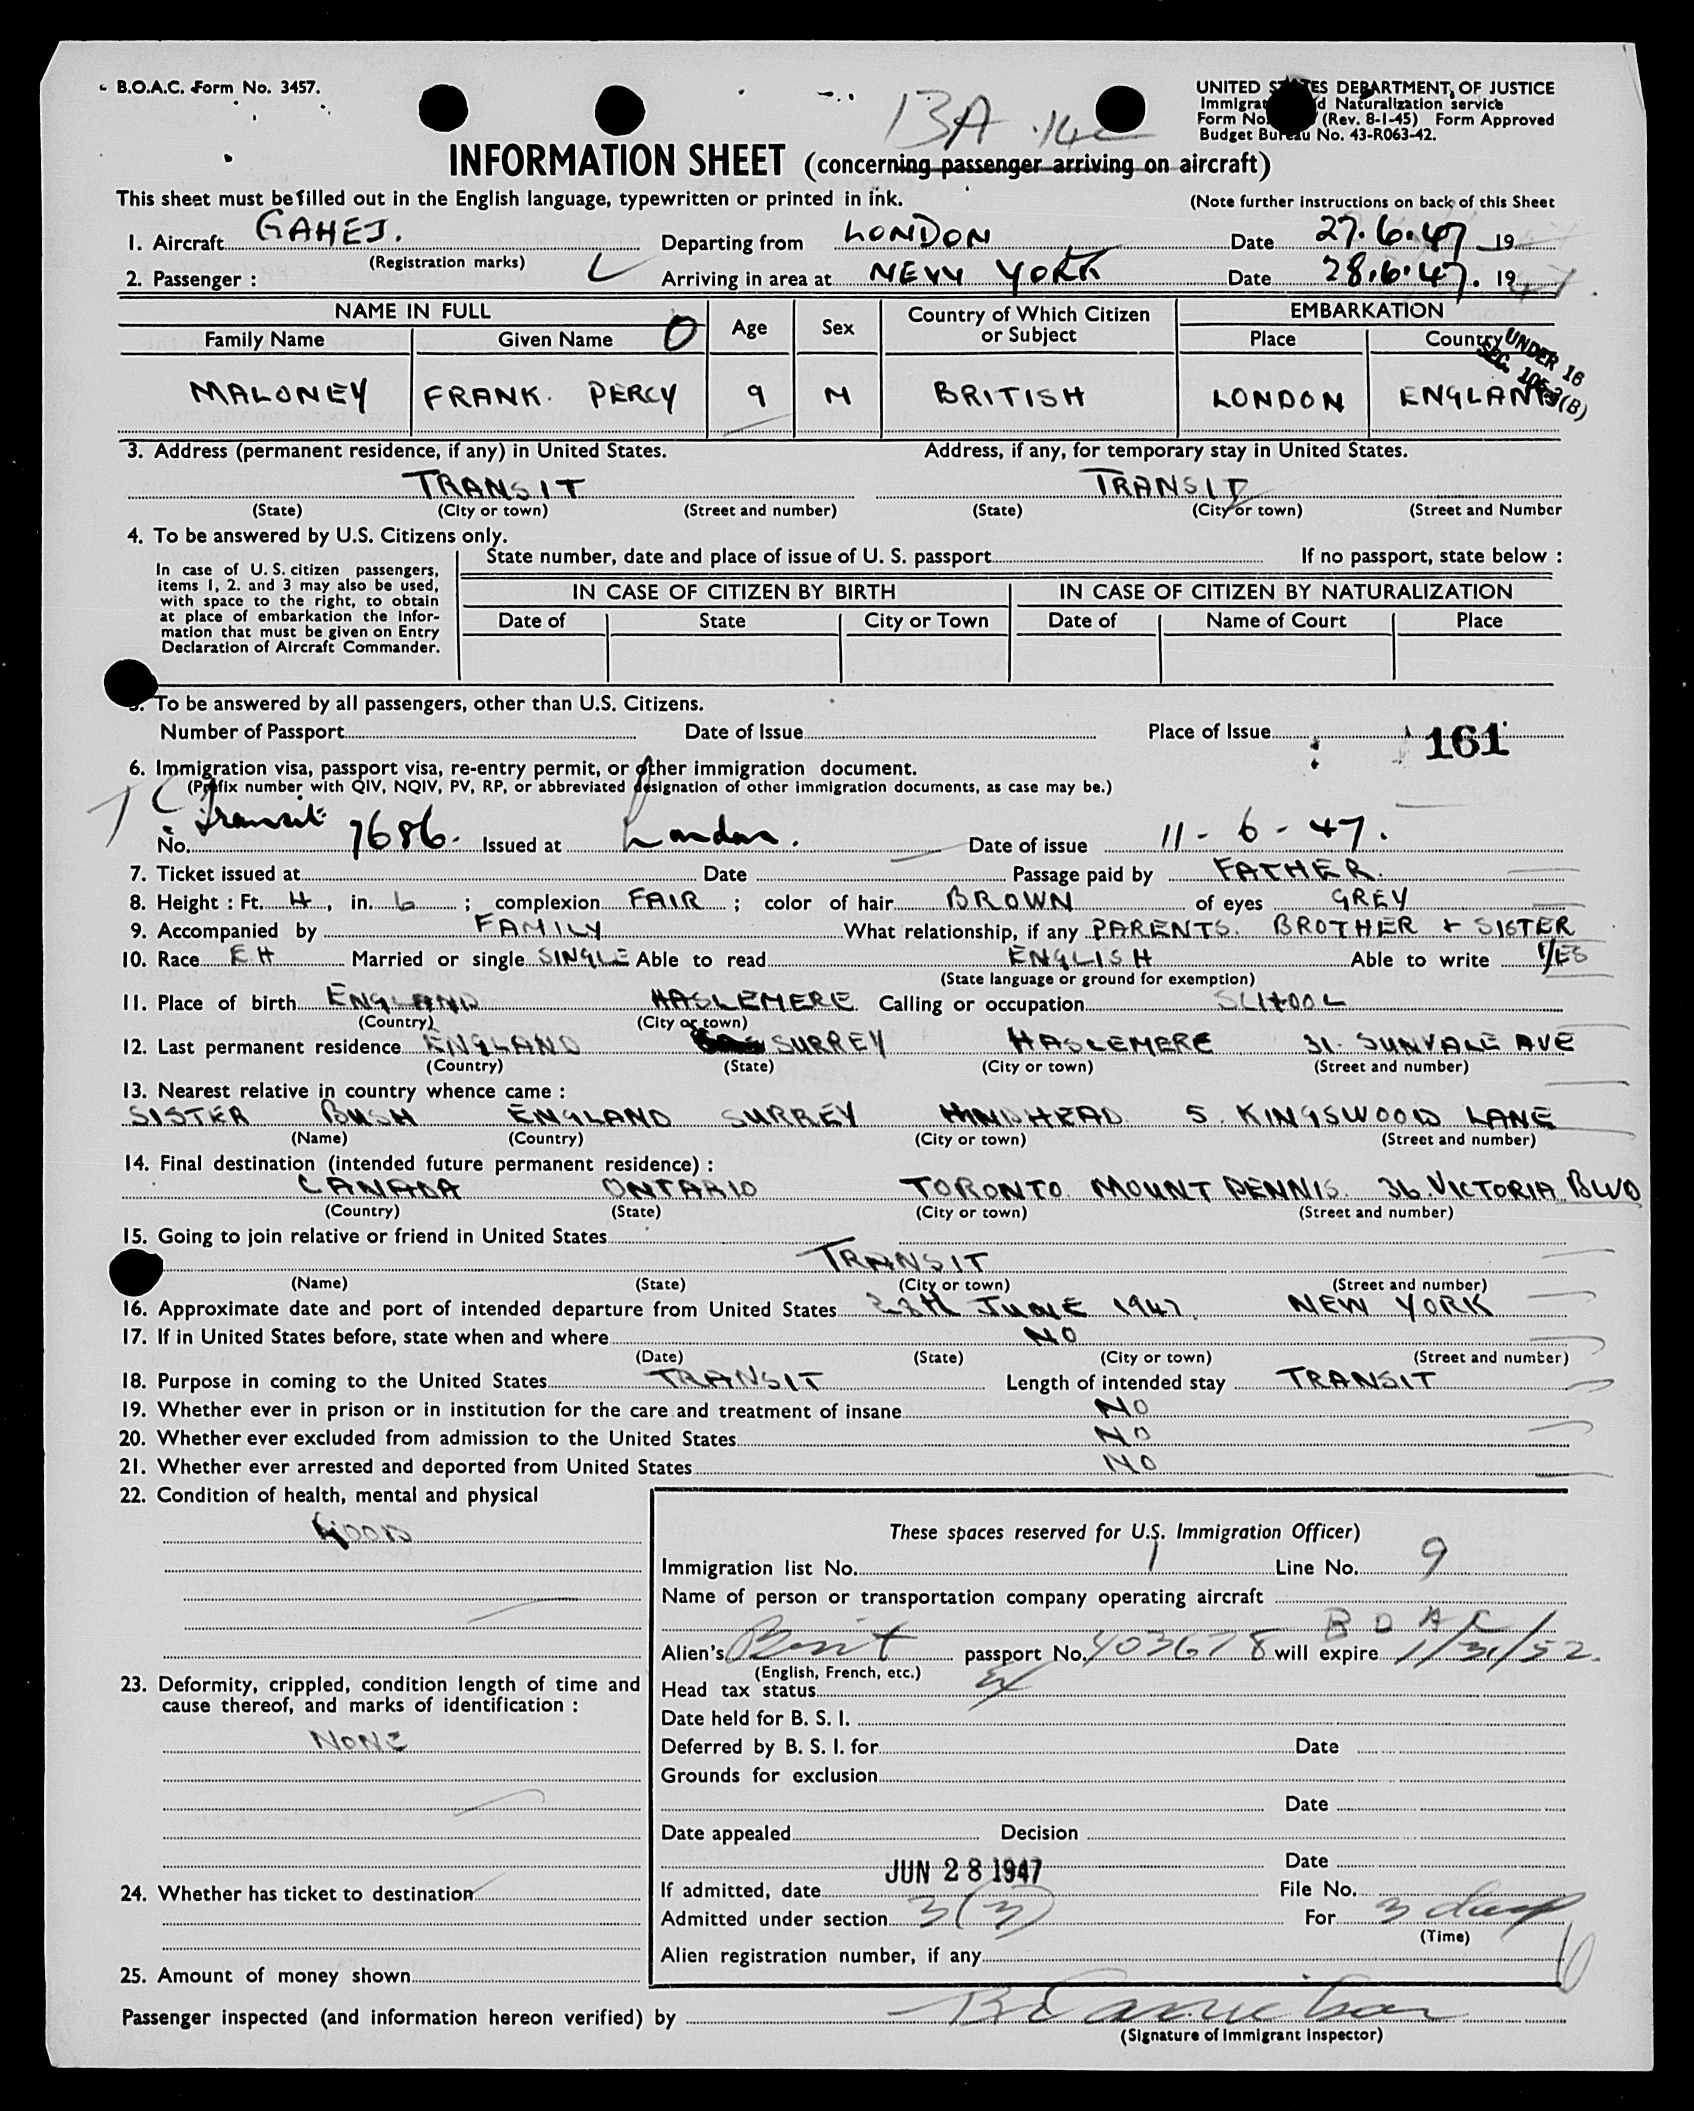 B.O.A.C. Form No. 3457.
UNITED STATES DEPARTMENT OF JUSTICE
Immigra d Naturalization service
Form No. (Rev. 8-1-45) Form Approved
Budget Bureau No. 43-R063-42.
13A 14
INFORMATION SHEET (concerning passenger arriving on aircraft)
This sheet must be filled out in the English language, typewritten or printed in ink.
(Note further instructions on back of this Sheet
1. Aircraft GAHEJ. Departing from LONDON Date 27.6.47 19
(Registration marks)
2. Passenger : Arriving in area at NEW YORK Date 28.6.47. 19
NAME IN FULL Age Sex Country of Which Citizen or Subject EMBARKATION
Family Name Given Name Place Country
UNDER 16
SEC. 105.3(B)
MALONEY FRANK. PERCY 9 M BRITISH LONDON ENGLAND
3. Address (permanent residence, if any) in United States. Address, if any, for temporary stay in United States.
TRANSIT TRANSIT
(State) (City or town) (Street and number) (State) (City or town) (Street and Number
4. To be answered by U.S. Citizens only.
State number, date and place of issue of U. S. passport If no passport, state below :
In case of U. S. citizen passengers,
items 1, 2. and 3 may also be used,
with space to the right, to obtain
at place of embarkation the infor-
mation that must be given on Entry
Declaration of Aircraft Commander.
IN CASE OF CITIZEN BY BIRTH IN CASE OF CITIZEN BY NATURALIZATION
Date of State City or Town Date of Name of Court Place
5. To be answered by all passengers, other than U.S. Citizens.
Number of Passport Date of Issue Place of Issue 161
6. Immigration visa, passport visa, re-entry permit, or other immigration document.
(Prefix number with QIV, NQIV, PV, RP, or abbreviated designation of other immigration documents, as case may be.)
No. Transit 7686. Issued at London. Date of issue 11 - 6 - 47.
7. Ticket issued at Date Passage paid by FATHER.
8. Height : Ft. 4, in. 6 ; complexion FAIR ; color of hair BROWN of eyes GREY
9. Accompanied by FAMILY What relationship, if any PARENTS. BROTHER + SISTER
10. Race EH Married or single SINGLE Able to read ENGLISH Able to write YES
(State language or ground for exemption)
11. Place of birth ENGLAND HASLEMERE Calling or occupation SCHOOL
(Country) (City or town)
12. Last permanent residence ENGLAND SURREY HASLEMERE 31. SUNVALE AVE
(Country) (State) (City or town) (Street and number)
13. Nearest relative in country whence came :
SISTER BUSH ENGLAND SURREY HINDHEAD 5. KINGSWOOD LANE
(Name) (Country) (City or town) (Street and number)
14. Final destination (intended future permanent residence) :
CANADA ONTARIO TORONTO. MOUNT DENNIS. 36. VICTORIA BLVD
(Country) (State) (City or town) (Street and number)
15. Going to join relative or friend in United States
TRANSIT
(Name) (State) (City or town) (Street and number)
16. Approximate date and port of intended departure from United States 28TH JUNE 1947. NEW YORK
17. If in United States before, state when and where NO
(Date) (State) (City or town) (Street and number)
18. Purpose in coming to the United States TRANSIT Length of intended stay TRANSIT
19. Whether ever in prison or in institution for the care and treatment of insane NO
20. Whether ever excluded from admission to the United States NO
21. Whether ever arrested and deported from United States NO
22. Condition of health, mental and physical
GOOD
23. Deformity, crippled, condition length of time and
cause thereof, and marks of identification :
NONE
24. Whether has ticket to destination
25. Amount of money shown
These spaces reserved for U.S. Immigration Officer)
Immigration list No. 1 Line No. 9
Name of person or transportation company operating aircraft
B O A C
Alien's Brit passport No. 403678 will expire 1/31/52.
(English, French, etc.)
Head tax status
Date held for B. S. I.
Deferred by B. S. I. for Date
Grounds for exclusion
Date
Date appealed Decision
Date
If admitted, date JUN 28 1947 File No.
Admitted under section 3(3) For 3 days
(Time)
Alien registration number, if any
Passenger inspected (and information hereon verified) by
(Signature of Immigrant Inspector)